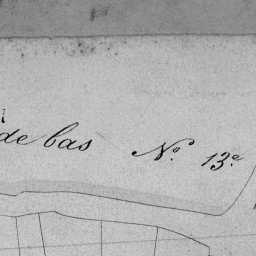 de bas N.º 13.e